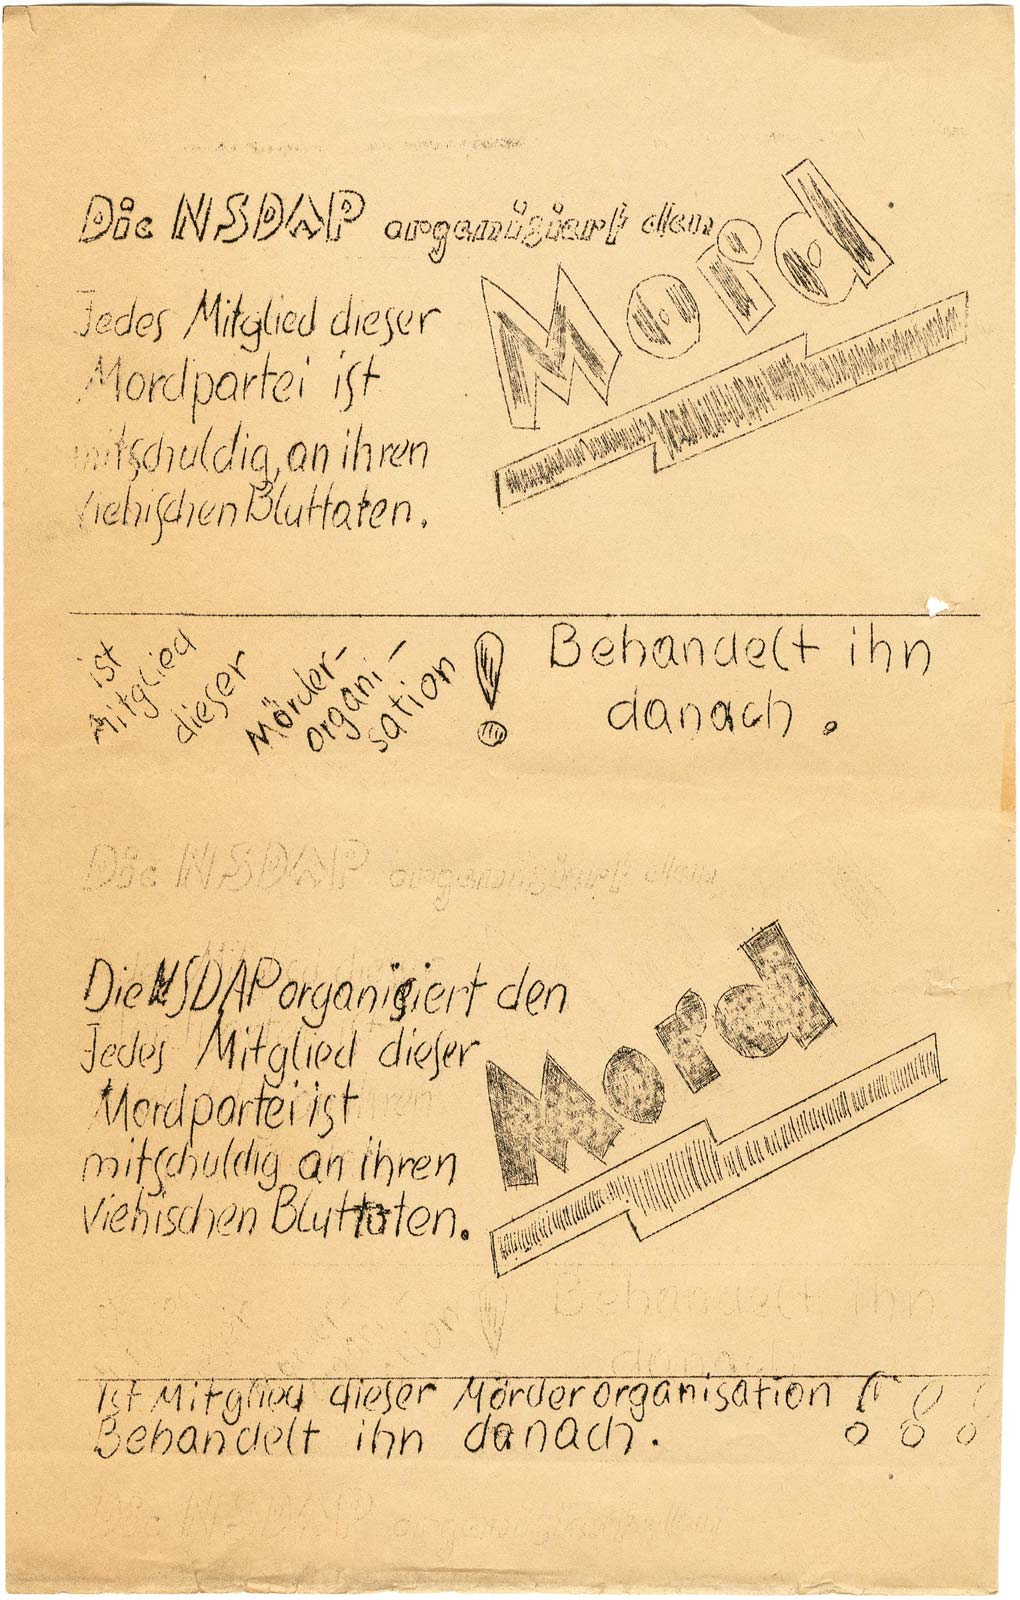 Die NSDAP organisiert den Mord
Jedes Mitglied dieser
Mordpartei ist
mitschuldig, an ihren
viehischen Bluttaten.
ist
Mitglied
dieser
Mörder-
organi-
sation !
Behandelt ihn
danach.
Die NSDAP organisiert den
Die NSDAP organisiert den Mord
Jedes Mitglied dieser
Mordpartei ist
mitschuldig an ihren
viehischen Bluttaten.
Behandelt ihn
danach
Ist Mitglied dieser Mörderorganisation !!!
Behandelt ihn danach.
Die NSDAP organisiert den